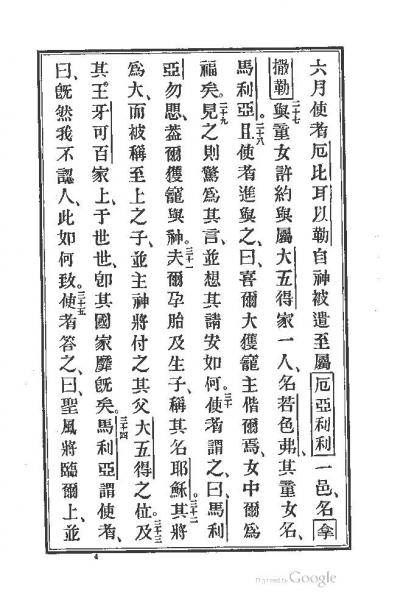 六月使者厄比耳以勒自神被遣至屬厄亞利利一邑、名拿
撒勒二十七與童女許約與屬大五得家一人、名若色弗、其童女名、
馬利亞。二十八且使者進與之曰、喜爾大獲寵主偕爾焉、女中爾為
福矣。二十九見之則驚為其言並想其請安如何。三十使者謂之曰、馬利
亞勿思、蓋爾獲寵與神。三十一夫爾孕胎及生子、稱其名耶穌。三十二其將
為大、而被稱至上之子、並主神將付之其父大五得之位。三十三及
其王牙可百家、上于世世、卽其國家靡旣矣。三十四馬利亞謂使者、
曰、旣然我不認人、此如何致。三十五使者答之、曰、聖風將臨爾上、並
4
Digitized by Google